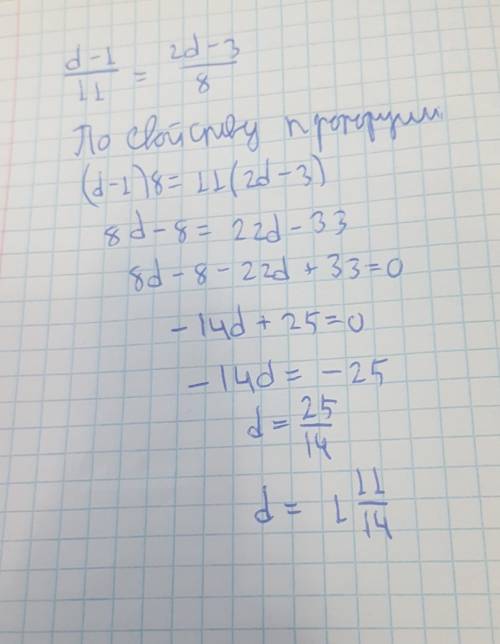 d-1/11 = 2d-3/8
По свойству пропорции
(d-1)8=11(2d-3)
8d-8=22d-33
8d-8-22d+33=0
-14d+25=0
-14d=-25
d=25/14
d=1 11/14